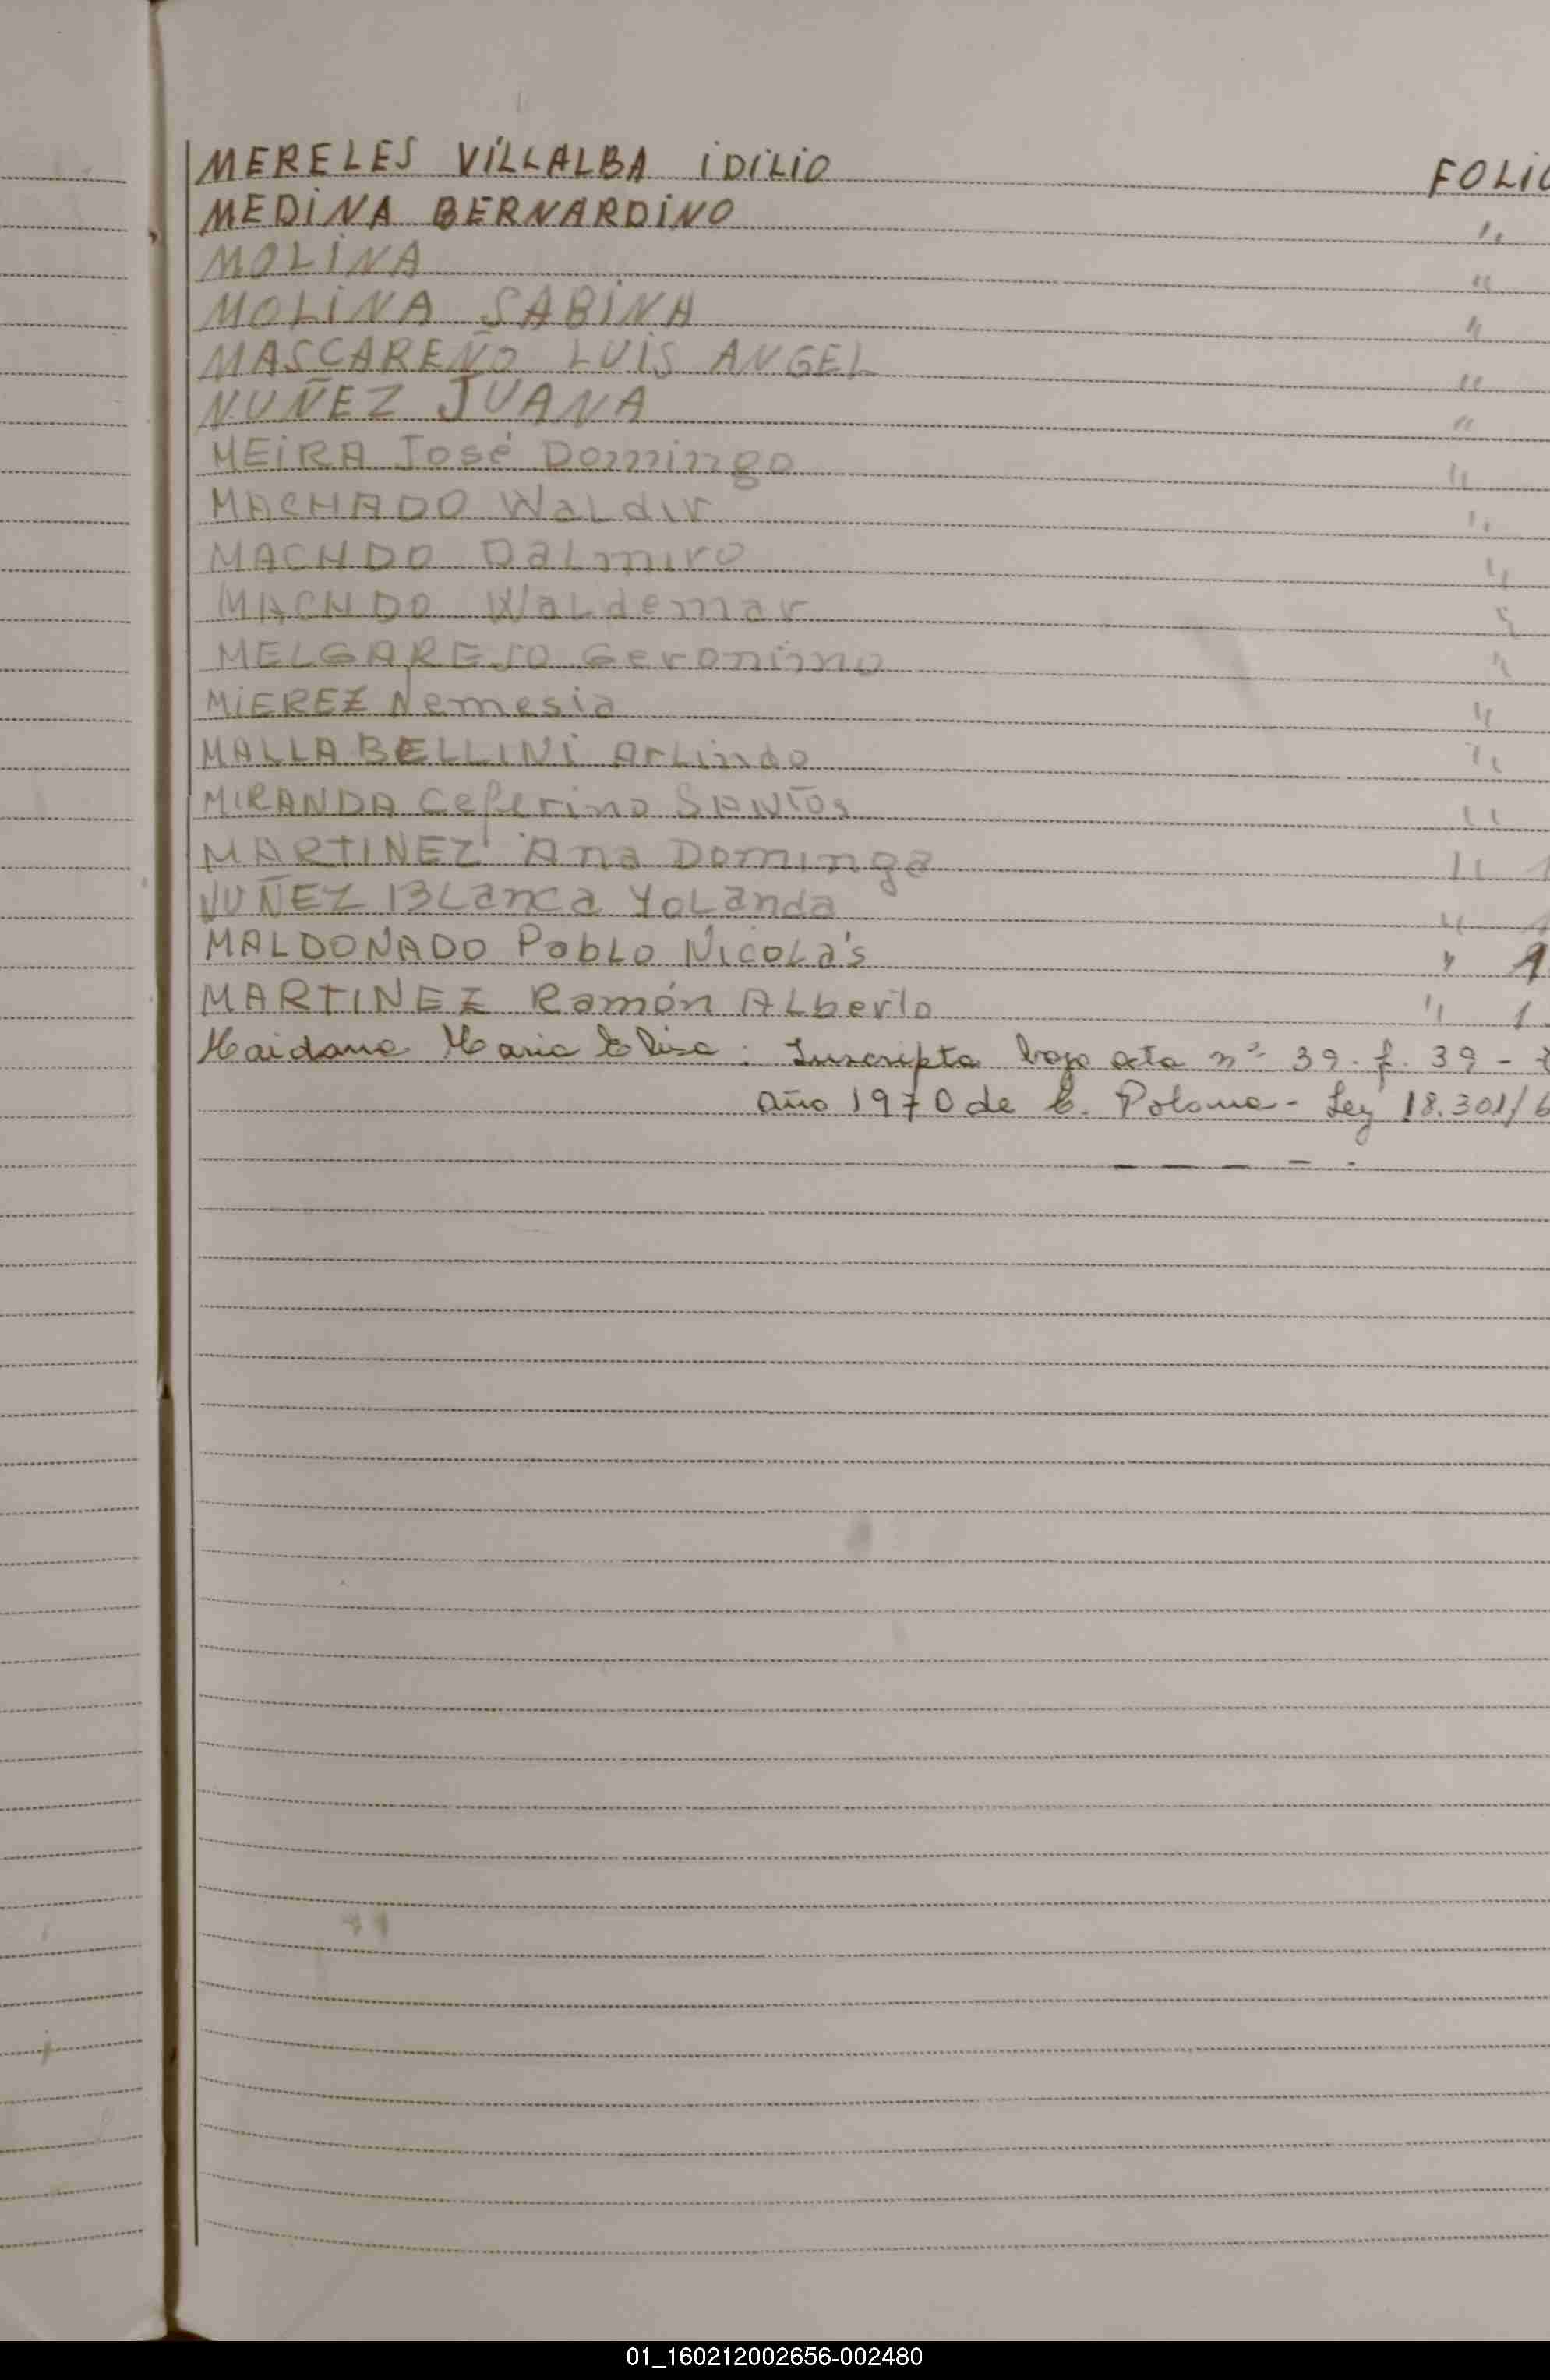 MERELES VILLALBA IDILIO FOLIO
MEDINA BERNARDINO "
MOLINA "
MOLINA SABINA "
MASCAREÑO LUIS ANGEL "
NUÑEZ JUANA "
MEIRA José Domingo "
MACHADO Waldir "
MACHDO Dalmiro "
MACHDO Waldemar "
MELGAREJO Geronimo "
MIEREZ Nemesia "
MALLABELLINI Arlindo "
MIRANDA Ceferino SANTOS "
MARTINEZ Ana Dominga " 1
NUÑEZ Blanca Yolanda " 1
MALDONADO Pablo Nicolás " 1
MARTINEZ Ramón Alberto " 1
Maidana Maria Elisa. Inscripta bajo acta nº 39. f. 39 -
Año 1970 de C. Poloma - Ley 18.301/6
01_160212002656-002480